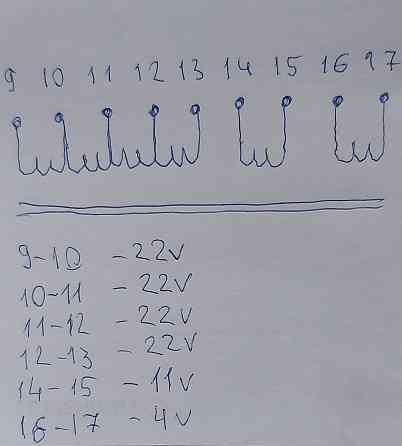 9 10 11 12 13 14 15 16 17
9-10 - 22V
10-11 - 22V
11-12 - 22V
12-13 - 22V
14-15 - 11V
16-17 - 4V